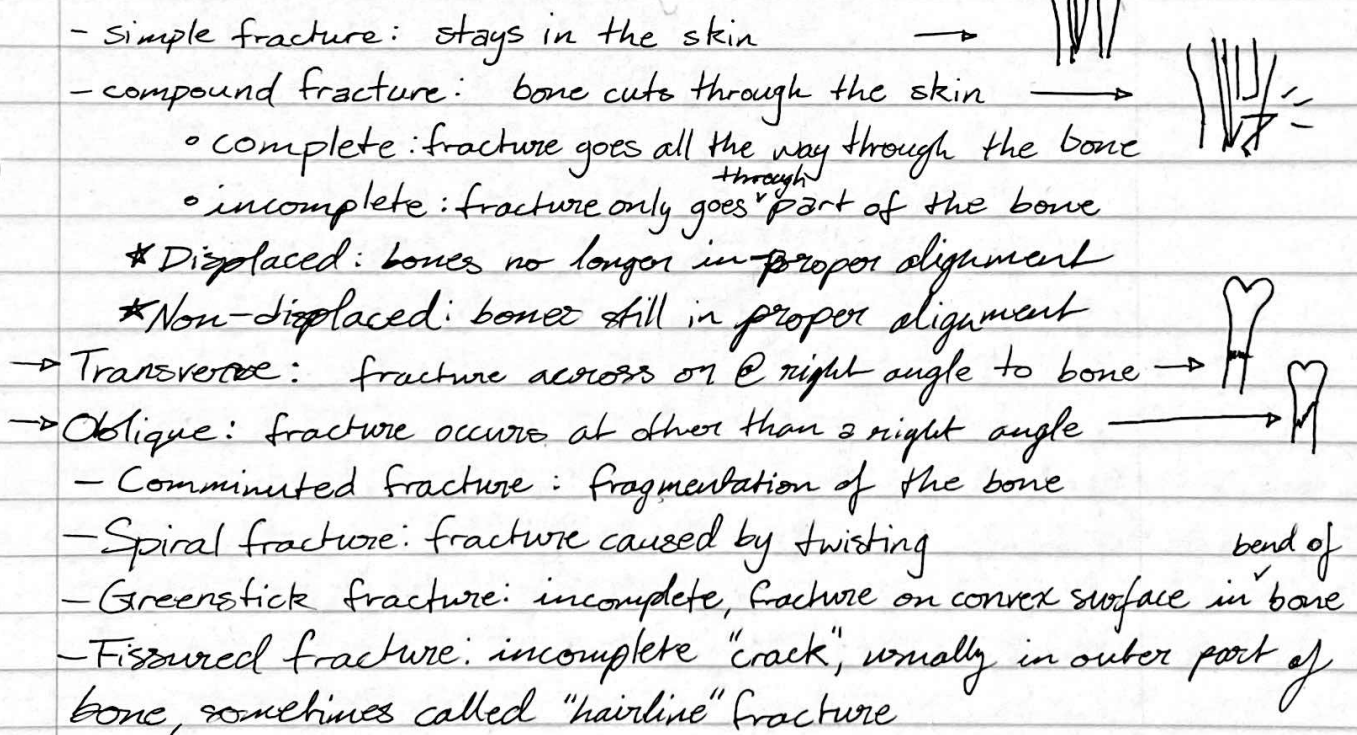 - simple fracture: stays in the skin →
- compound fracture: bone cuts through the skin →
∘ complete: fracture goes all the way through the bone
∘ incomplete: fracture only goes through part of the bone
* Displaced: bones no longer in proper alignment
* Non-displaced: bones still in proper alignment
→ Transverse: fracture across on @ right angle to bone →
→ Oblique: fracture occurs at other than a right angle →
- Comminuted fracture: fragmentation of the bone
- Spiral fracture: fracture caused by twisting
- Greenstick fracture: incomplete, facture on convex surface in bend of bone
- Fissured fracture: incomplete "crack", usually in outer part of
bone, sometimes called "hairline" fracture